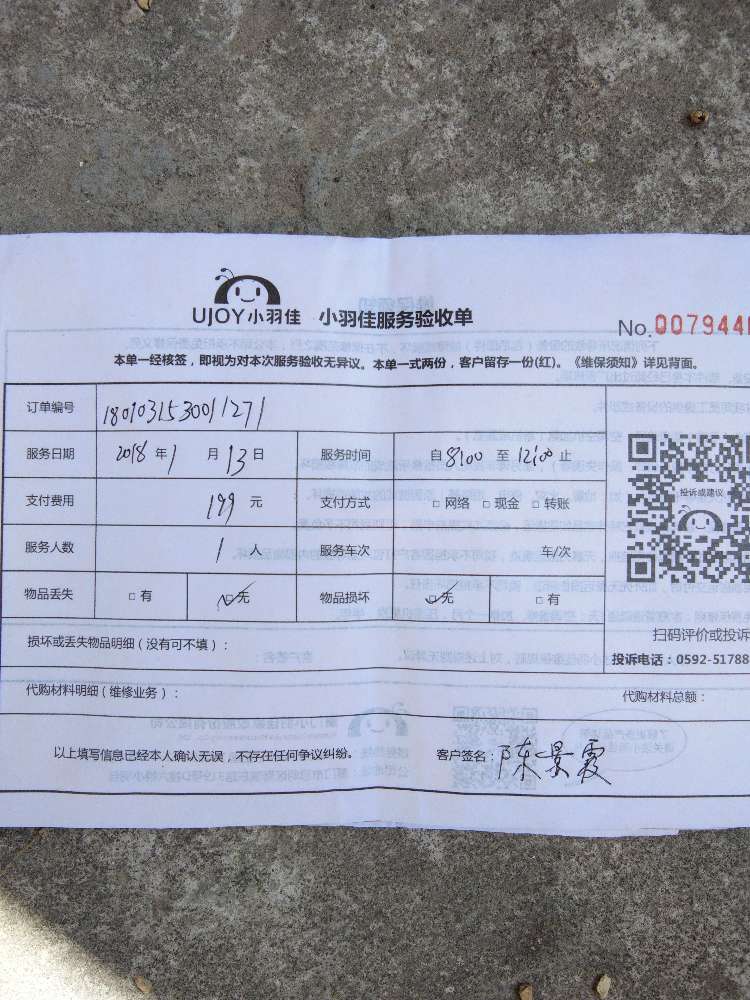 UJOY小羽佳 小羽佳服务验收单
No.
本单一经核签，即视为对本次服务验收无异议。本单一式两份，客户留存一份(红)。《维保须知》详见背面。
订单编号 1801031530011271
服务日期 2018年1月13日 服务时间 自8:00至12:00止
支付费用 199元 支付方式 □网络 □现金 □转账
服务人数 1人 服务车次 车/次
物品丢失 □有 ☑无 物品损坏 ☑无 □有
投诉或建议
扫码评价或投诉
损坏或丢失物品明细（没有可不填）：
投诉电话：0592-51788
代购材料明细（维修业务）： 代购材料总额：
以上填写信息已经本人确认无误，不存在任何争议纠纷。 客户签名：陈景霞